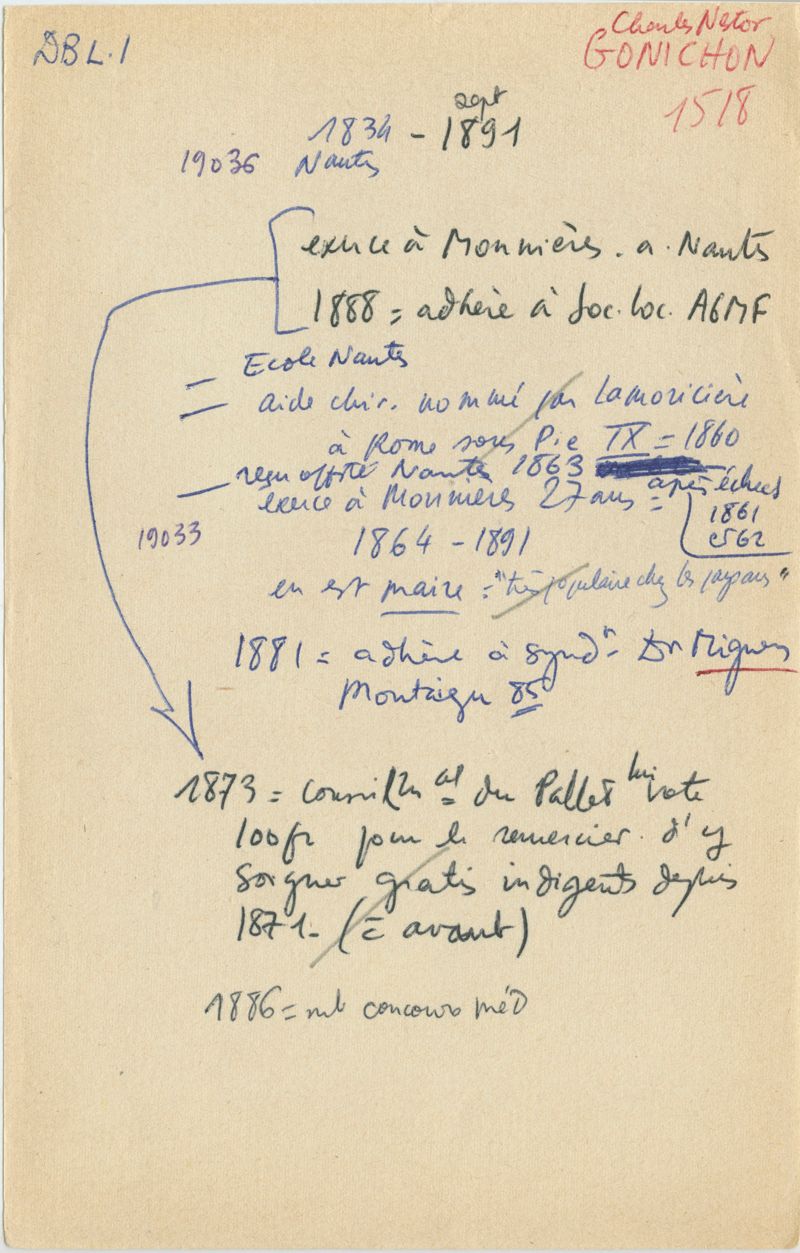 DBL.1
Charles Nestor
GONICHON
1518
sept
1834 - 1891
19036 Nantes
exerce à Monnières . a . Nantes
1888 = adhère à Soc. loc. AGMF
= Ecole Nantes
aide chir. nommé par Lamoricière
à Rome sous Pie IX = 1860
reçu offté Nantes 1863
exerce à Monnières 27 ans = après échecs
1861
et 62
19033
1864 - 1891
en est maire = "très populaire chez les paysans"
1881 = adhère à Synd. Dr Mignen
Montaigu 85
1873 = Conseil al du Pallet lui vote
100fr pour le remercier d'y
Soigner gratis indigents depuis
1871 - ( = avant)
1886 = mb concours méd